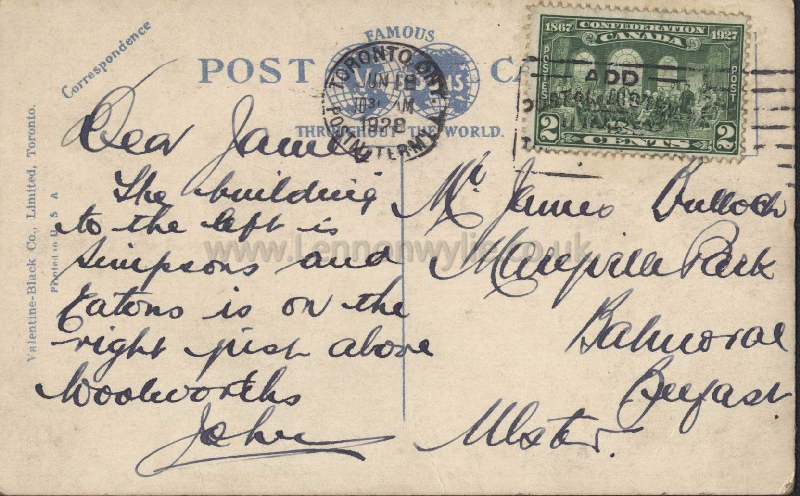 Correspondence
FAMOUS
POST CA
THROUGHOUT THE WORLD.
TORONTO, ONT.
JUN 18
10 30 AM
1928
POSTAL TERM
1867 CONFEDERATION 1927
CANADA
POSTES POST
2 CENTS 2
ADD
Valentine-Black Co., Limited, Toronto.
Printed in U S A
Dear James
The building
to the left is
Simpsons and
Eatons is on the
right just above
Woolworths
John
Mr James Bulloch
Park
Balmoral
Belfast
Ulster.
www.Lennonwylie.co.uk